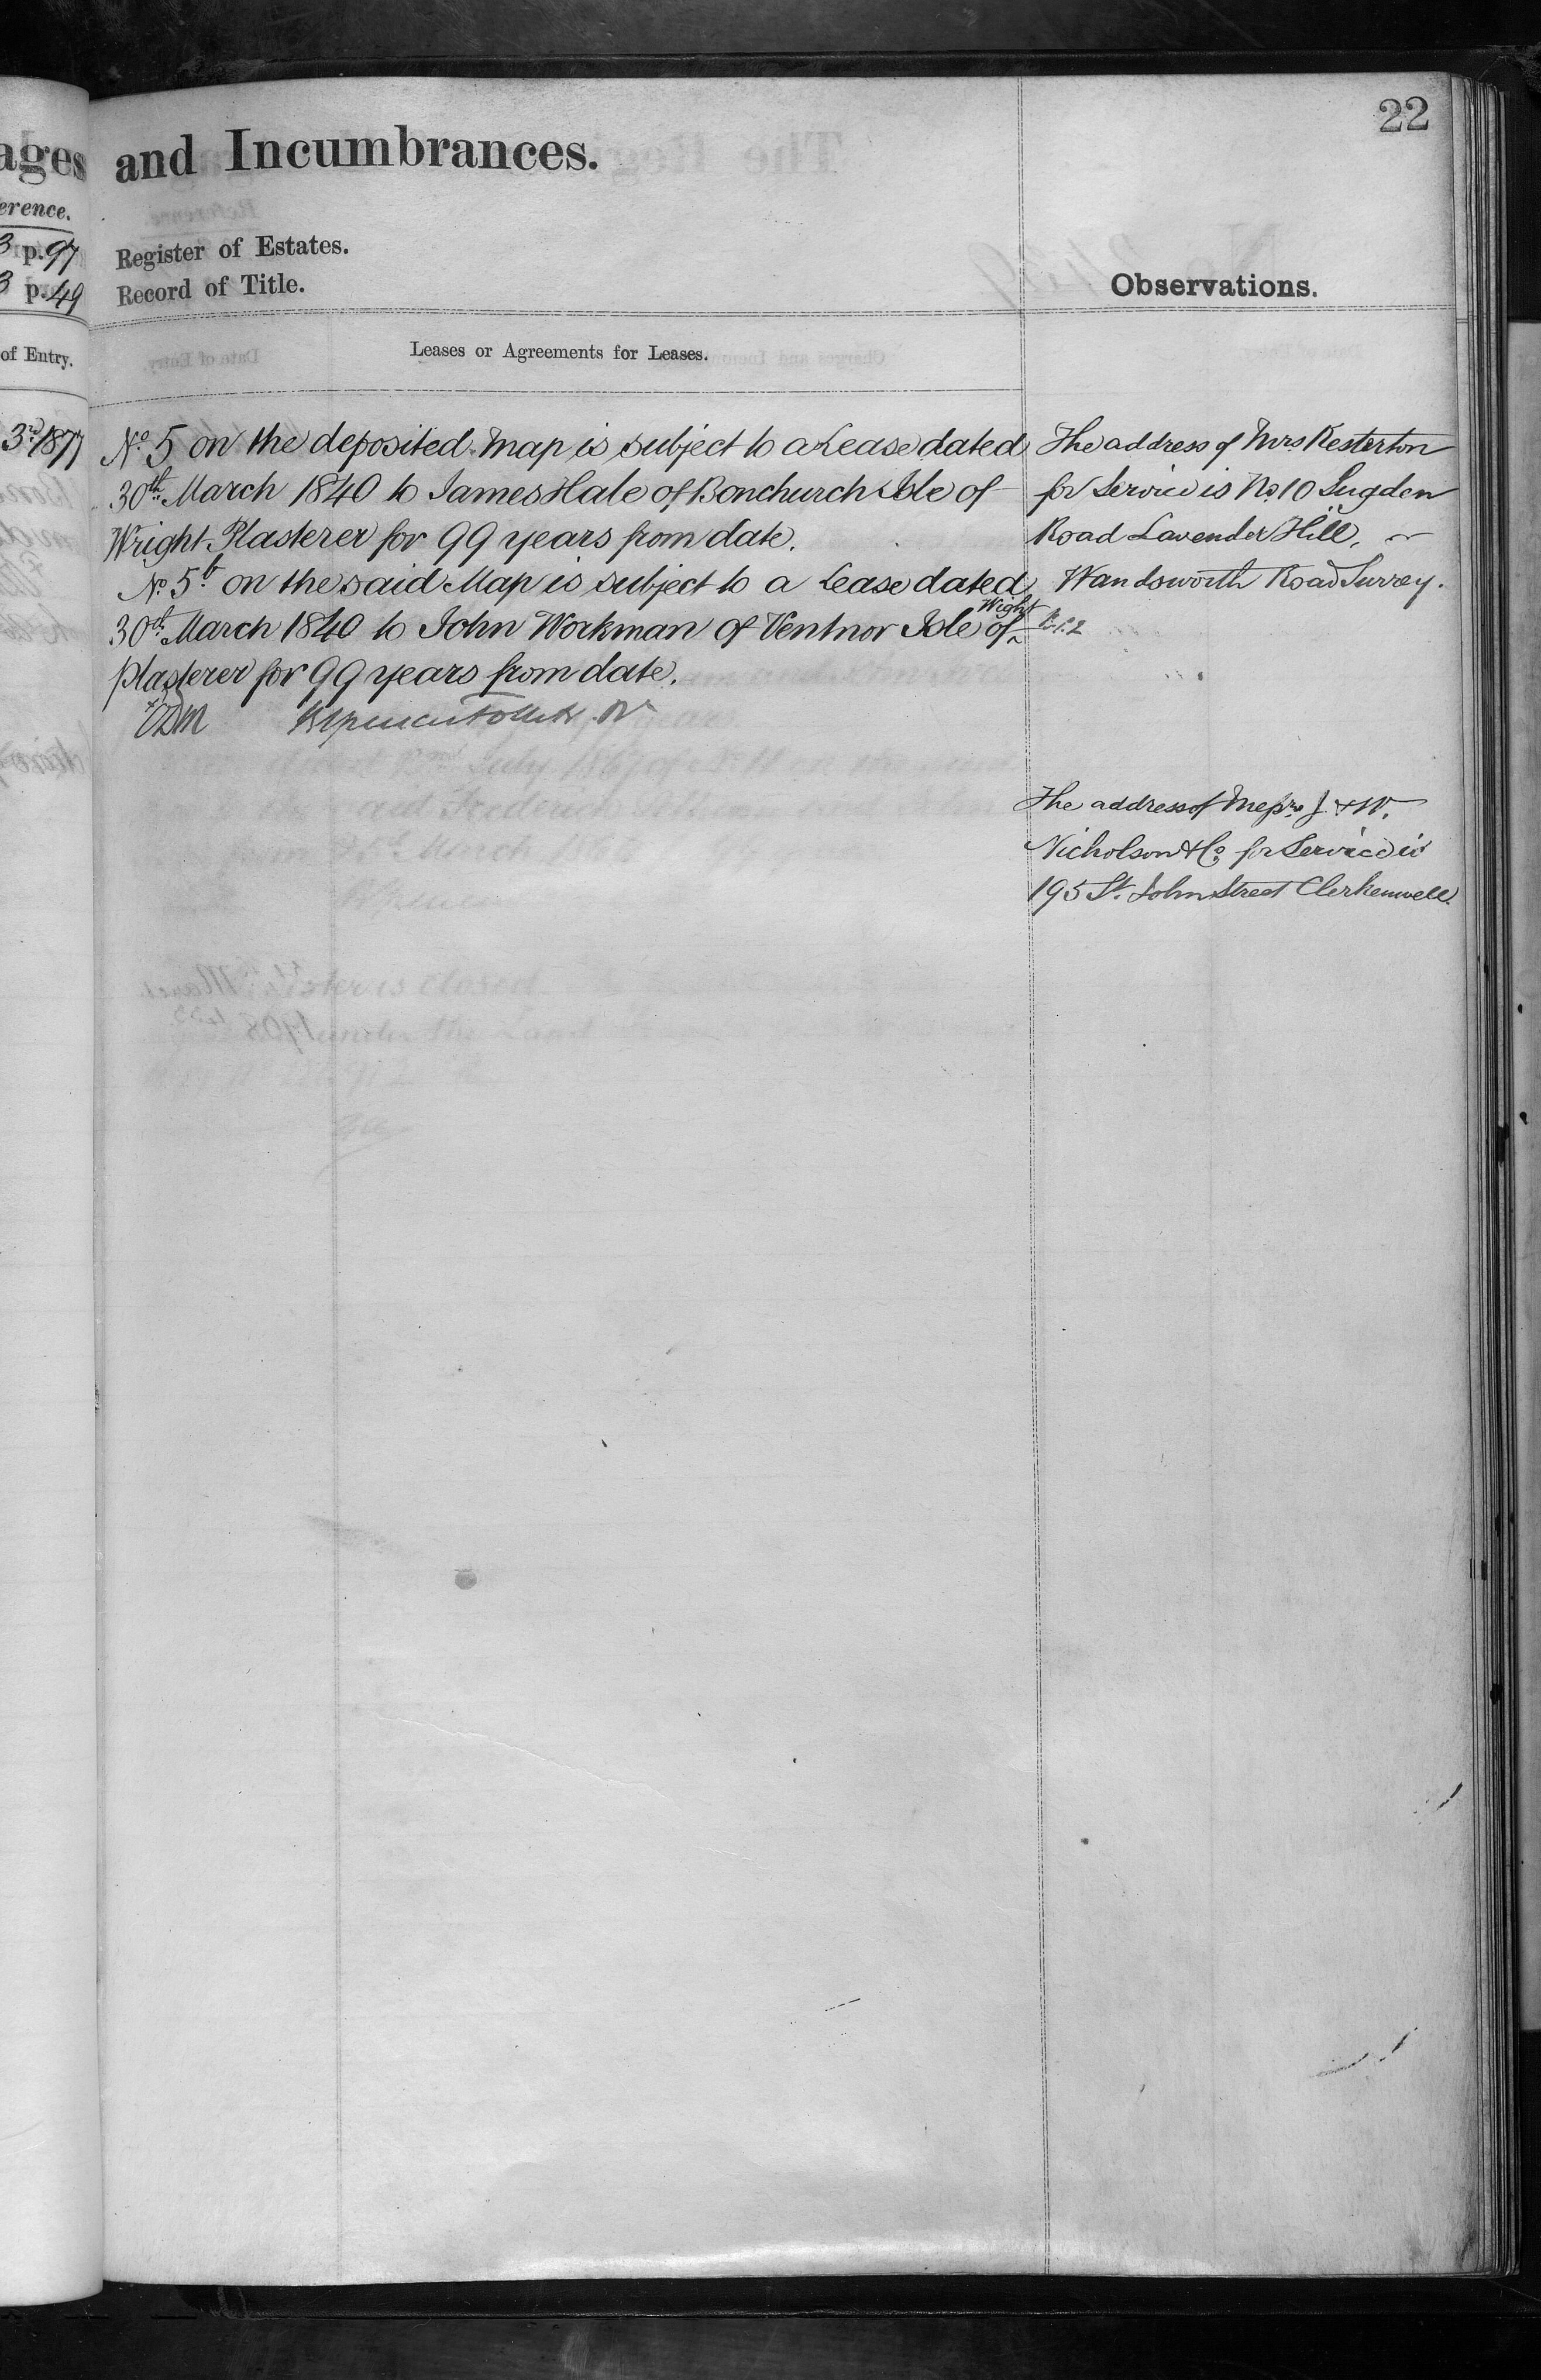 22
ages and Incumbrances.
erence.
3 p. 97 Register of Estates.
3 p. 49 Record of Title.
Observations.
of Entry.
Leases or Agreements for Leases.
3rd 1877
No. 5 on the deposited Map is subject to a Lease dated
30th March 1840 to James Hale of Bonchurch Isle of
Wright Plasterer for 99 years from date.
No. 5b on the said Map is subject to a Lease dated
30th March 1840 to John Workman of Ventnor Isle of Wight
plasterer for 99 years from date.
The address of Mrs Kesterton
for Service is No. 10 Sugden
Road Lavender Hill,
Wandsworth Road Surrey.
The address of Messrs J. & W.
Nicholson & Co. for Service is
195 St. John Street Clerkenwell.